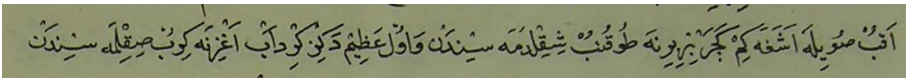 اَقُبْ صُويِلَه اَشَغَه كِمْ كَجَرْ بِرْبِرِنَه طُوقُنُبْ شِقِلْدَمَه سِينْدَنْ وَاوُلْ عَظِيمْ دَكِزْ كِرْدَابْ اَغْزِنَه كِرُبْ صِقِلْمَه سِينْدَنْ